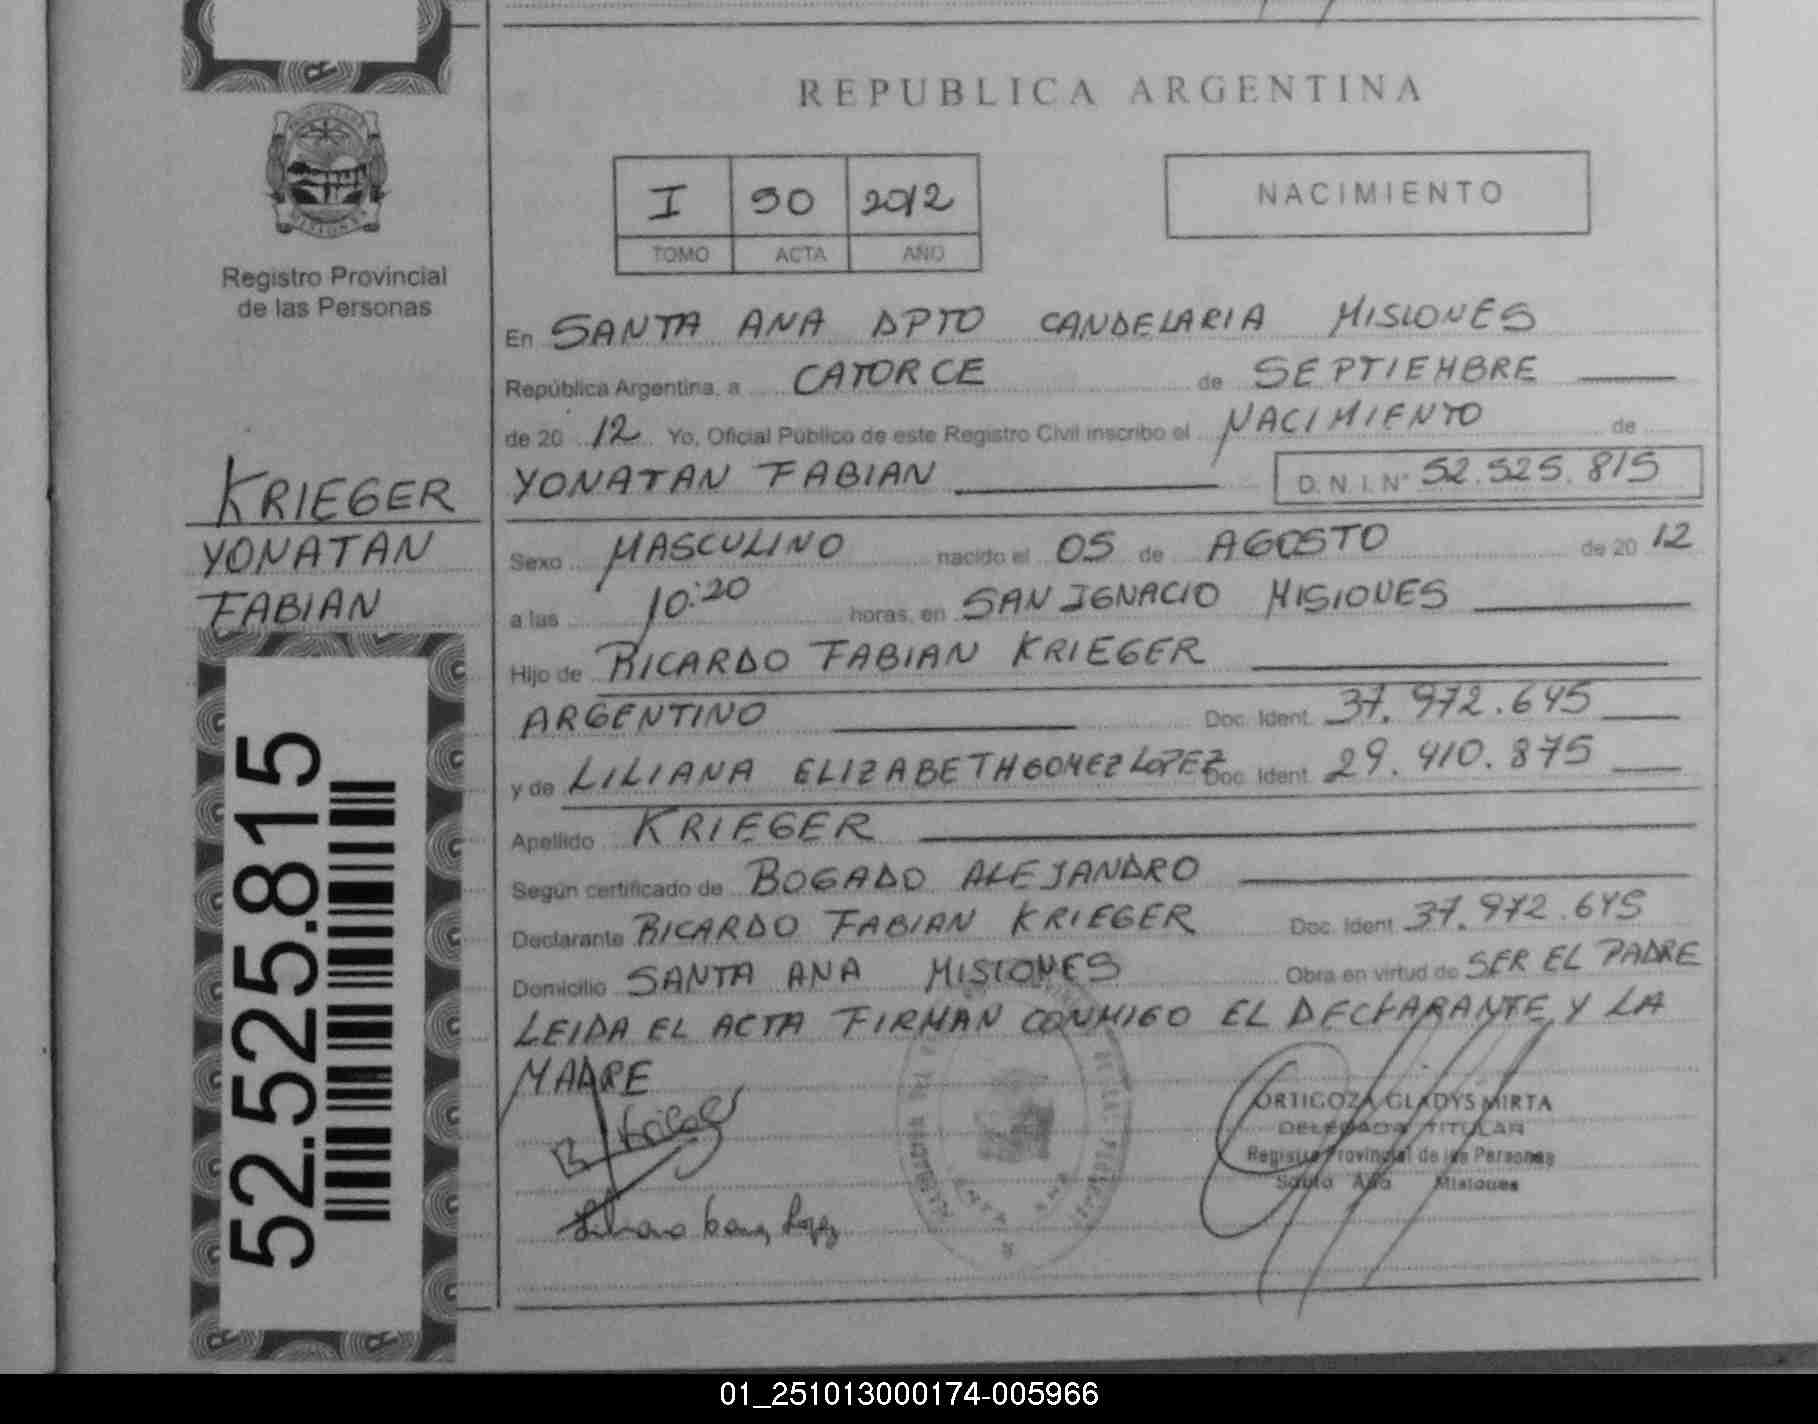 REPUBLICA ARGENTINA
I 90 2012
TOMO ACTA AÑO
NACIMIENTO
Registro Provincial
de las Personas
KRIEGER
YONATAN
FABIAN
52.525.815
En SANTA ANA DPTO CANDELARIA MISIONES
República Argentina, a CATORCE de SEPTIEMBRE
de 20 12 Yo, Oficial Público de este Registro Civil inscribo el NACIMIENTO de
YONATAN FABIAN D.N.I.N° 52.525.815
Sexo MASCULINO nacido el 05 de AGOSTO de 20 12
a las 10:20 horas, en SAN IGNACIO MISIONES
Hijo de RICARDO FABIAN KRIEGER
ARGENTINO Doc. Ident. 37.972.645
y de LILIANA ELIZABETH GOMEZ LOPEZ Doc. Ident. 29.410.875
Apellido KRIEGER
Según certificado de BOGADO ALEJANDRO
Declarante RICARDO FABIAN KRIEGER Doc. Ident. 37.972.645
Domicilio SANTA ANA MISIONES Obra en virtud de SER EL PADRE
LEIDA EL ACTA FIRMAN CONMIGO EL DECLARANTE Y LA
MADRE
ORTIGOZA GLADYS MIRTA
DELEGADA TITULAR
Registro Provincial de las Personas
Santa Ana Misiones
01_251013000174-005966